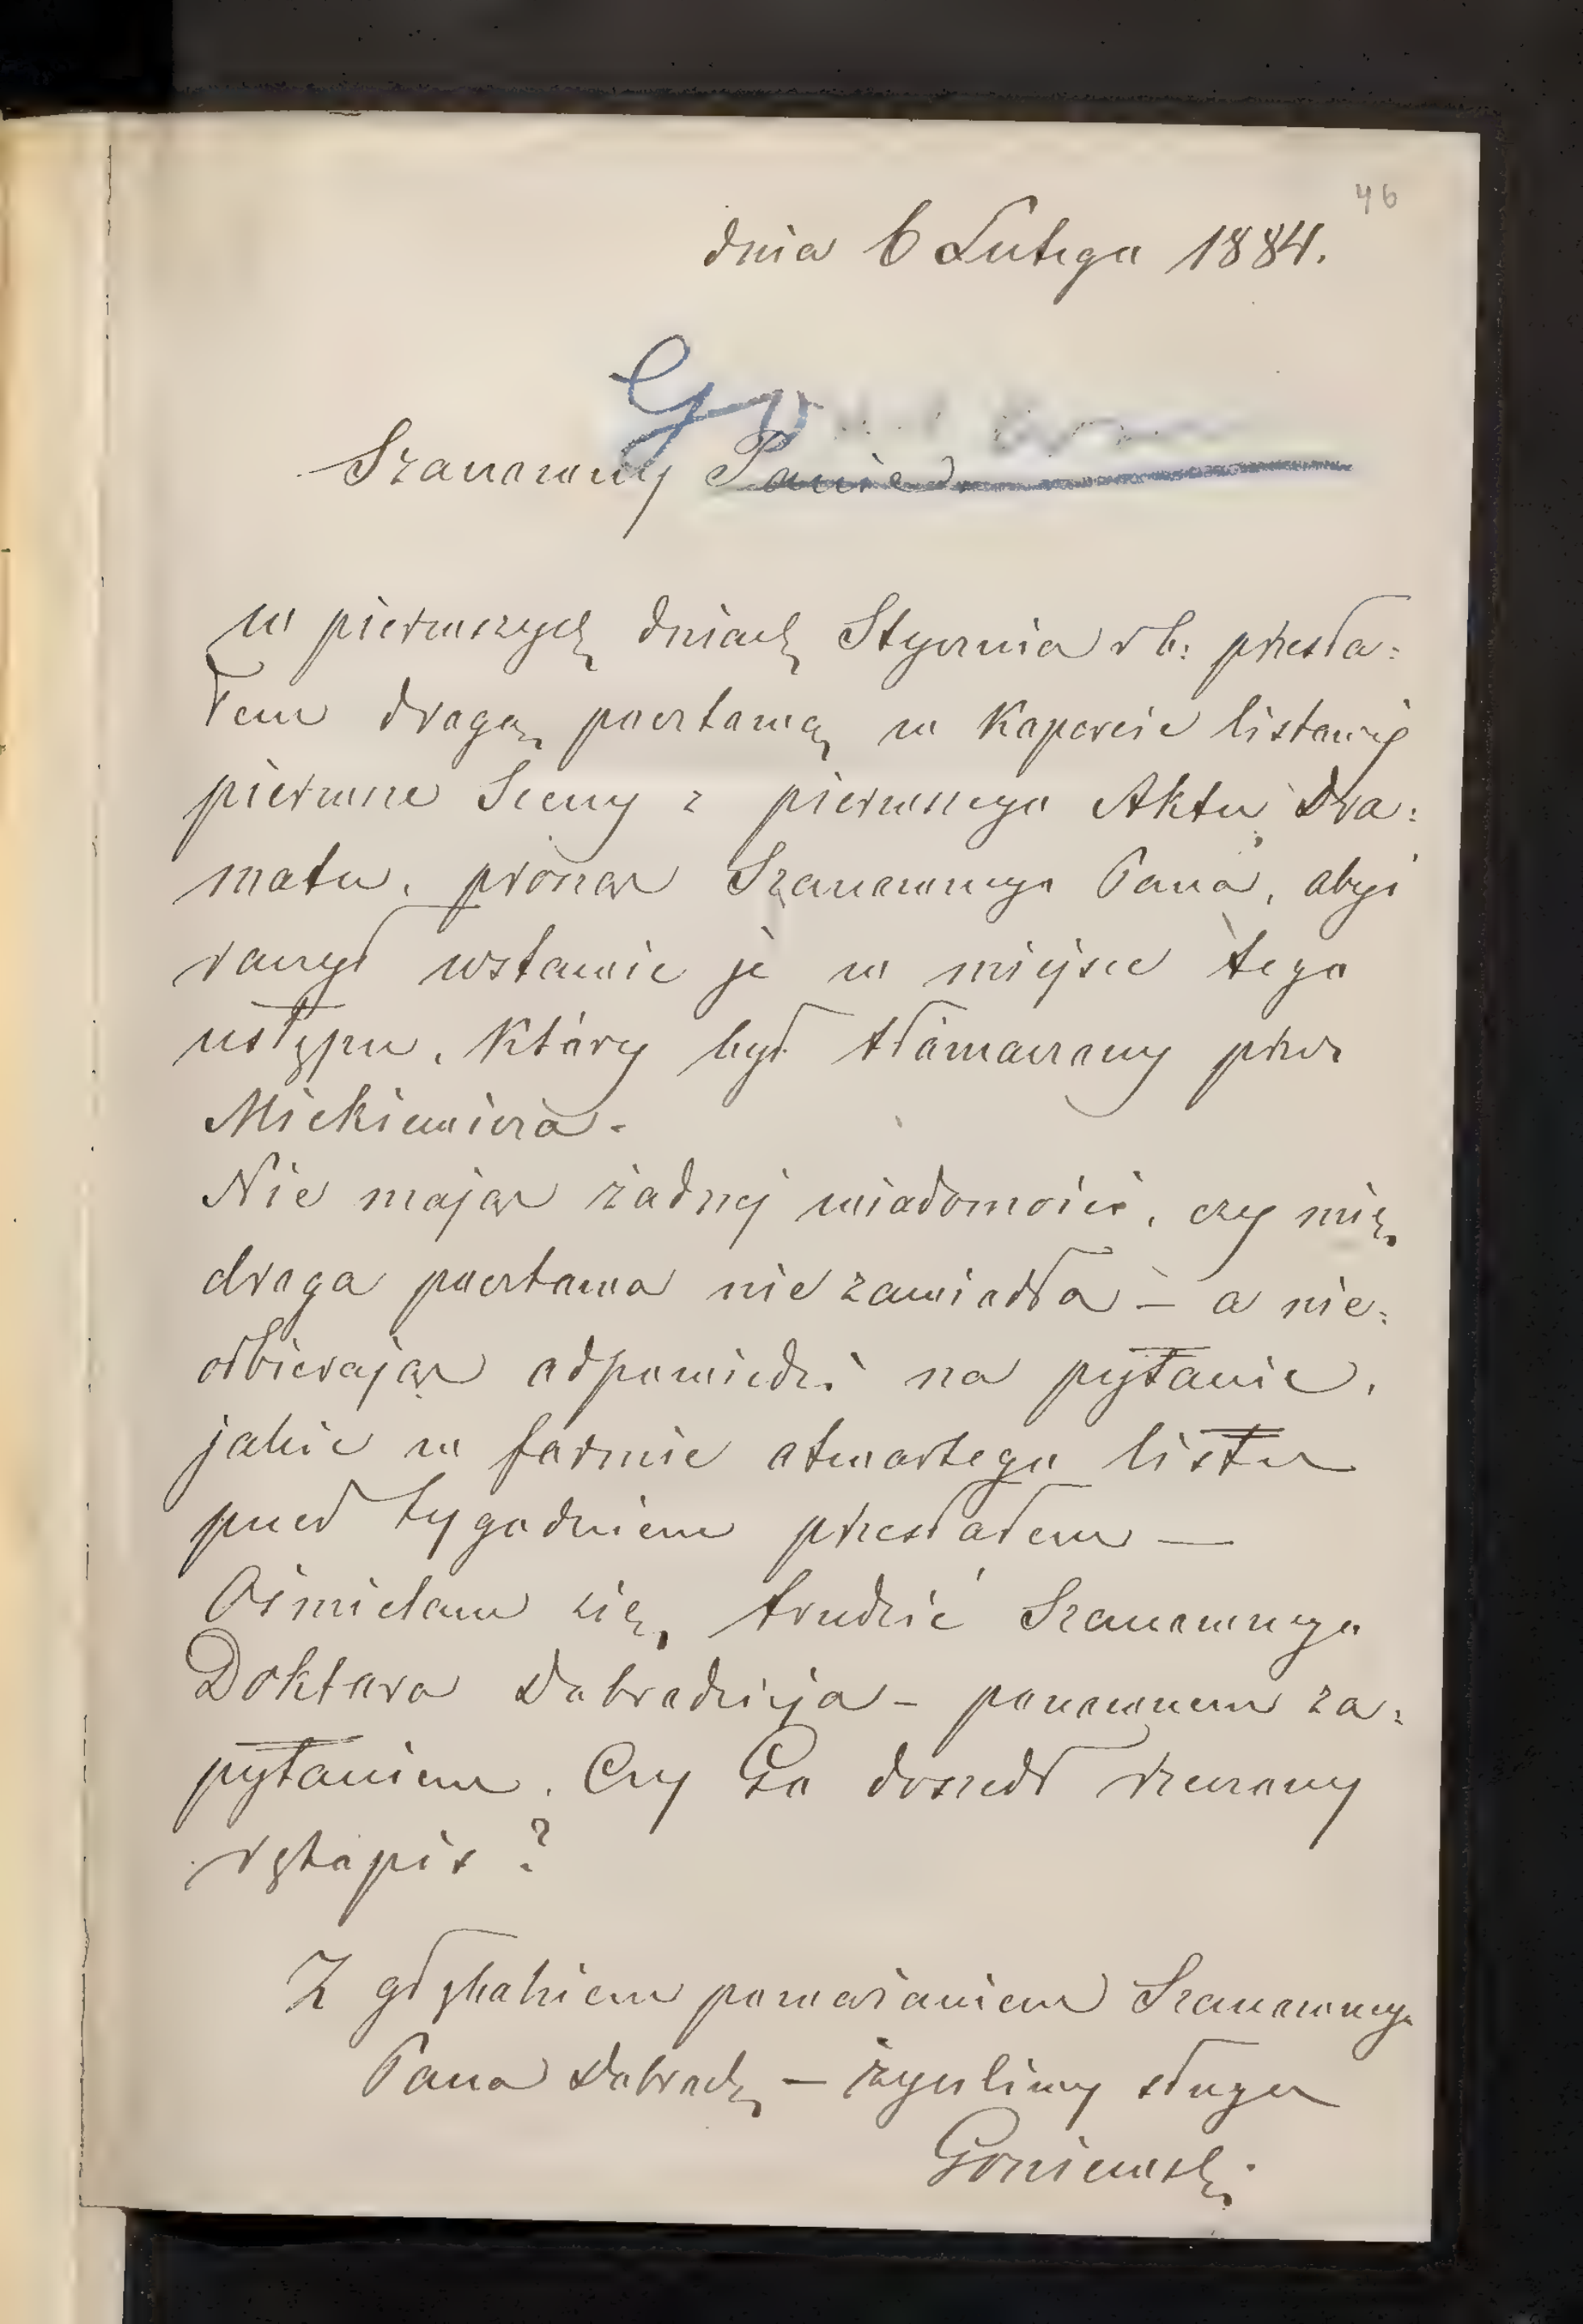 46
dnia 6 Lutego 1884.
Szanowny Panie
w pierwszych dniach Stycznia r b: przesła:
łem drogą pocztową w kopercie listowej
pierwsze Sceny z pierwszego Aktu Dra:
matu, prosząc Szanownego Pana, abyś
raczył wstawić je w miejsce tego
ustępu, który był tłómaczony przez
Mickiewicza.
Nie mając żadnej wiadomości, czy mię
droga pocztowa nie zawiodła – a nie:
odbierając odpowiedzi na pytanie,
jakie w formie otwartego listu
przed tygodniem przesłałem —
Ośmielam się, trudzić Szanownego
Doktora Dobrodzieja – ponownem za:
pytaniem. Czy Go doszedł rzeczony
rękopis?
Z głębokiem poważaniem Szanownego
Pana Dobrodz – życzliwy sługa